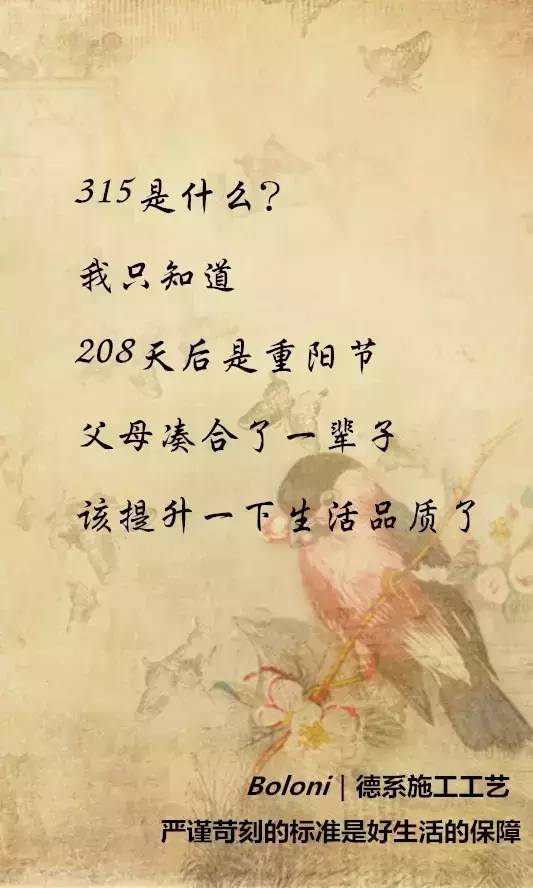 315是什么?
我只知道
208天后是重阳节
父母凑合了一辈子
该提升一下生活品质了
Boloni | 德系施工工艺
严谨苛刻的标准是好生活的保障